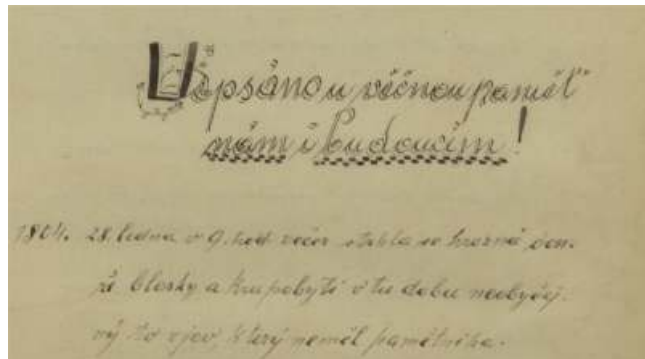 Vepsáno u věčnou paměť
nám i budoucím!
1804. 28. ledna v 9. hod večer strhla se hrozná bou-
ře blesky a krupobytí v tu dobu neobyčej-
ný to zjev, který neměl pamětníka.